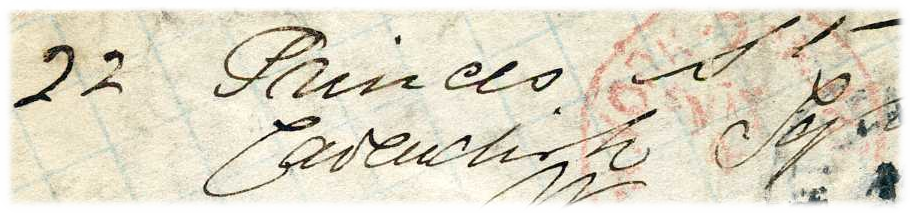 22 Princes St
Cavendish Sq
W